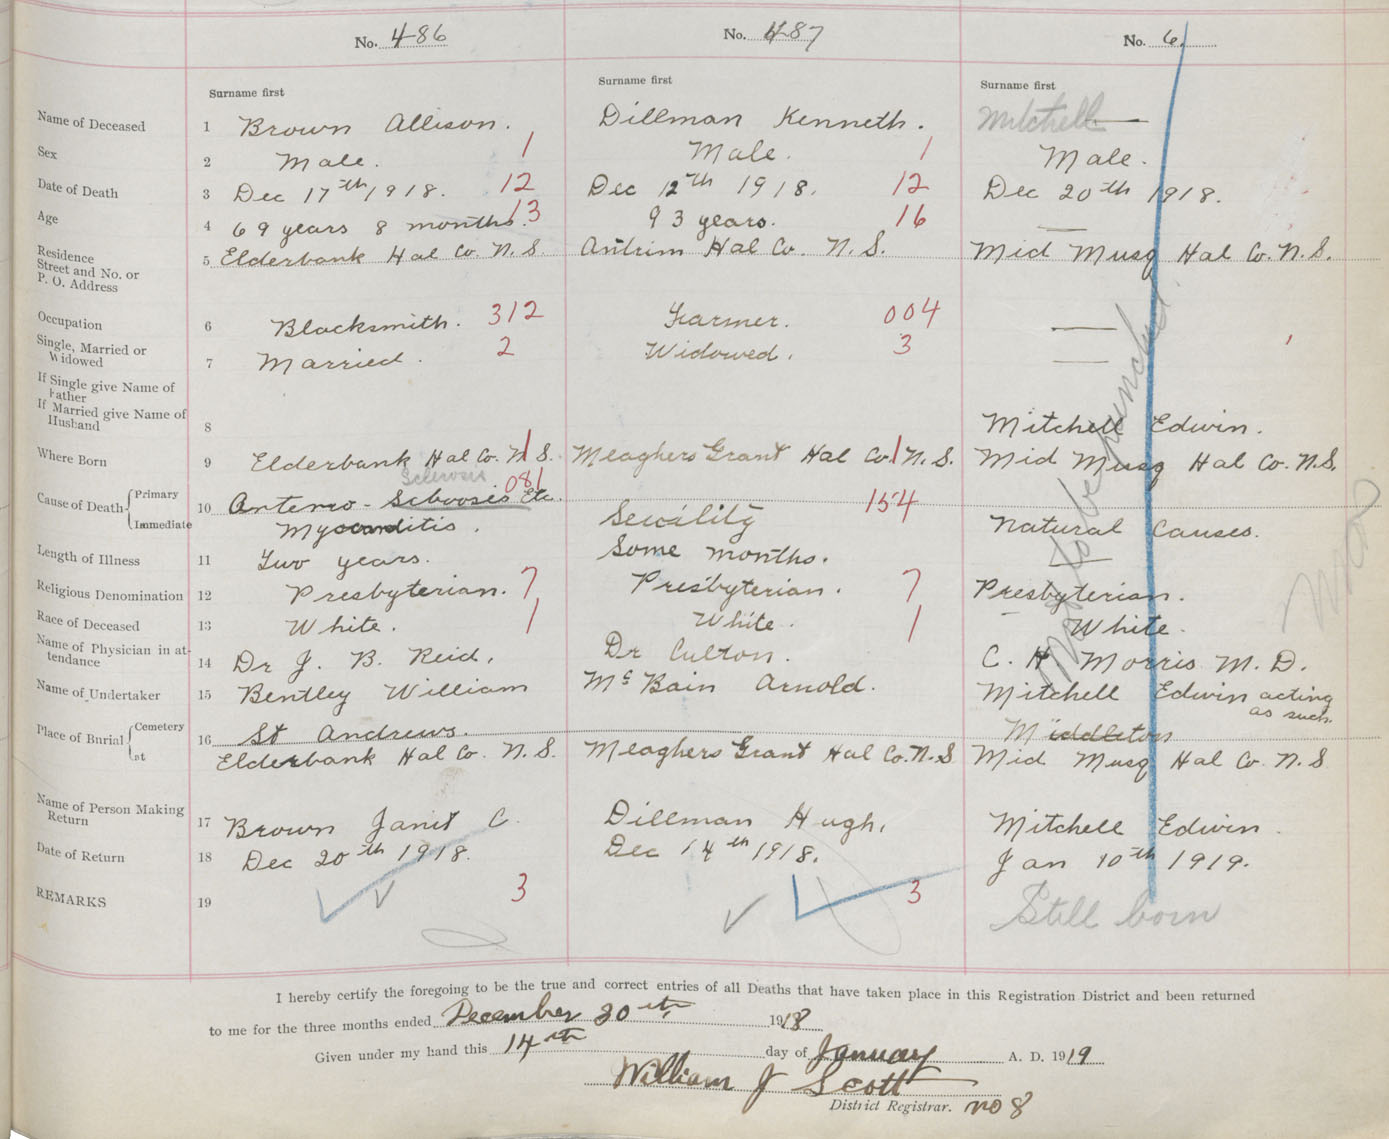 No. 486 No. 487 No. 6.
Surname first Surname first Surname first
Name of Deceased 1 Brown Allison. Dillman Kenneth. Mitchell —
Sex 2 Male. 1 Male. 1 Male.
Date of Death 3 Dec 17th 1918. 12 Dec 12th 1918. 12 Dec 20th 1918.
Age 4 69 years 8 months. 13 93 years. 16 —
Residence
Street and No. or
P. O. Address 5 Elderbank Hal Co. N. S Antrim Hal Co. N. S. Mid Musq Hal Co. N. S.
Occupation 6 Blacksmith. 312 Farmer. 004 —
Single, Married or
Widowed 7 Married. 2 Widowed. 3 —
If Single give Name of
Father
If Married give Name of
Husband 8 Mitchell Edwin.
Where Born 9 Elderbank Hal Co. N. S. 1 Meaghers Grant Hal Co. N. S. 1 Mid Musq Hal Co. N.S.
Sclerosis 081
Cause of Death Primary 10 Anterio - Scboosis Etc. 154
Immediate Myocarditis. Senility Natural Causes.
Length of Illness 11 Two years. Some months. —
Religious Denomination 12 Presbyterian. 7 Presbyterian. 7 Presbyterian.
Race of Deceased 13 White. 1 White. 1 White.
Name of Physician in at-
tendance 14 Dr J. B. Reid. Dr Culton. C. H. Morris M. D.
Name of Undertaker 15 Bentley William McBain Arnold. Mitchell Edwin acting
as such.
Place of Burial Cemetery 16 St Andrews. Middleton
at Elderbank Hal Co. N. S. Meaghers Grant Hal Co. N. S Mid Musq Hal Co. N. S
Name of Person Making
Return 17 Brown Janet C. Dillman Hugh. Mitchell Edwin.
Date of Return 18 Dec 20th 1918. Dec 14th 1918. Jan 10th 1919.
REMARKS 19 3 3 Still born
Not to be punched.
I hereby certify the foregoing to be the true and correct entries of all Deaths that have taken place in this Registration District and been returned
to me for the three months ended December 30th, 1918
Given under my hand this 14th day of January A. D. 1919
William J Scott
District Registrar. no 8